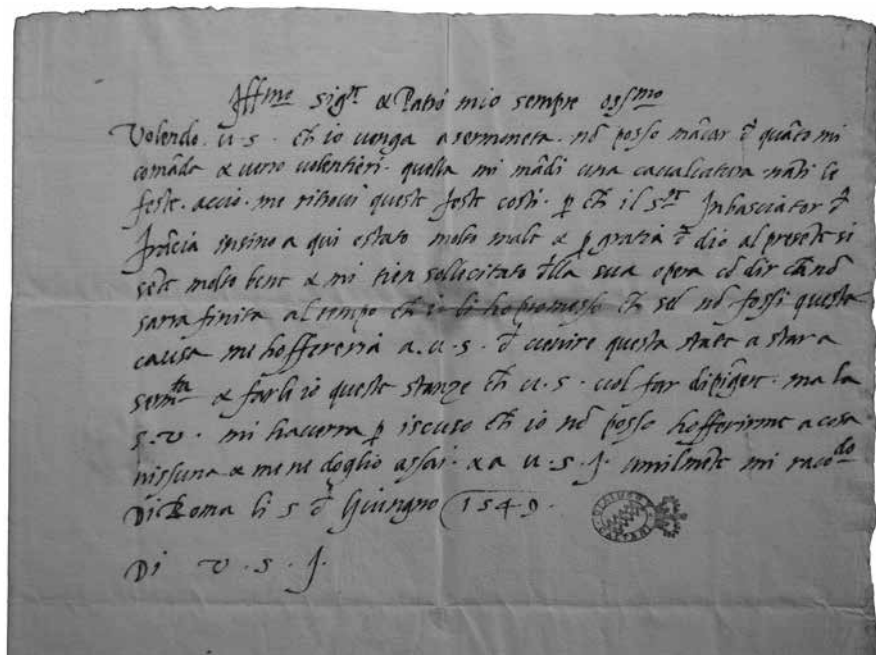 Ill.mo sig.re & Patrõ mio sempre oss.mo
Volendo . v . s . chẽ io venga a sermoneta . nõ posso mãcar đ quãto mi
comãda & verro volentieri . quella mi mãdi una caccalcatura . nãti le
feste . accio . me ritrovi queste feste costi . p chẽ il s.re Inbasciator đ
frãcia insino a qui e stato molto male & p gratia đ dio al presente si
sẽte molto bene & mi tien sollicitato đlla sua opera cõ dir chãnõ
sarra finita al tempo chẽ io li ho promesso chẽ sel nõ fossi questa
causa me hoffereria a . v . s . đ venire questa state a star a
serm.ta & farli io queste stanze chẽ v . s . vol far dipĩgere . ma la
s . v . mi haverra p iscuso chẽ io nõ posso hofferirme a cosa
nissuna & me ne doglio assai . & a v . s . I . umilmẽte mi raco.do
Di Roma li 5 đ Giungno 1549 .
Di v . s . I .
CAETANI